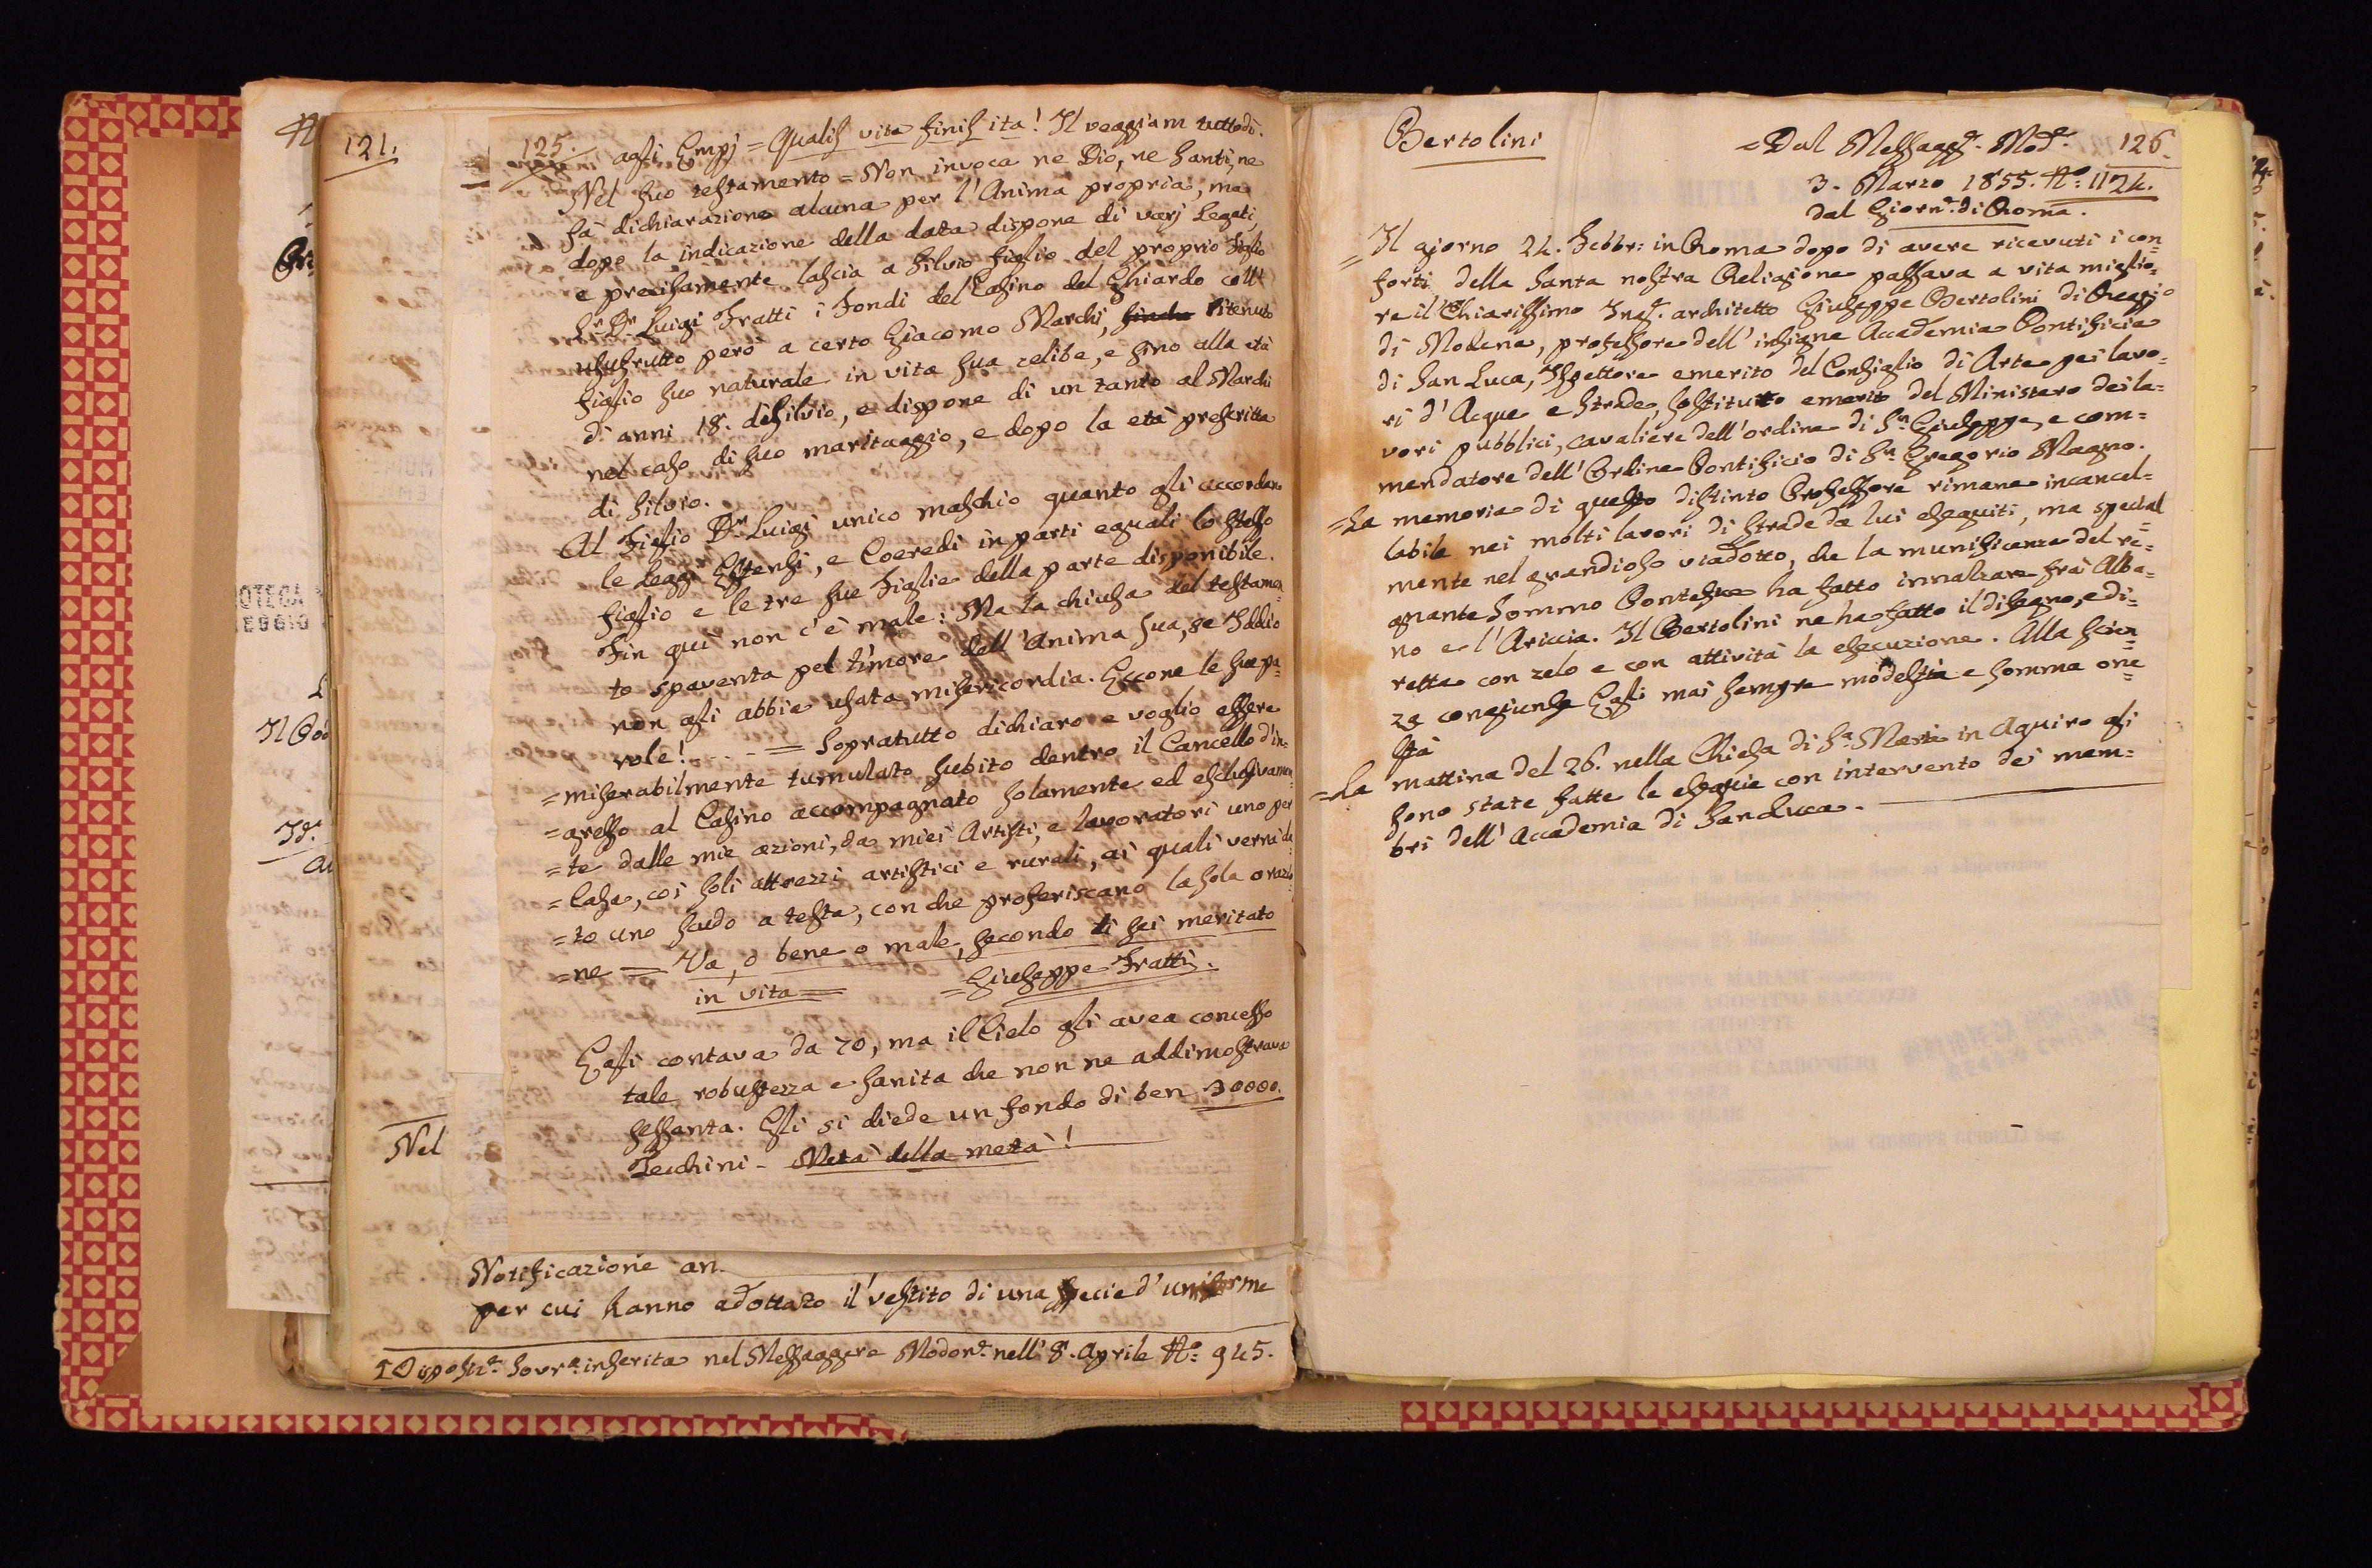 121.
125.
agli Empj = Qualis vita finis ita! Il veggiam tuttodì.
Nel suo testamento = Non invoca ne Dio, ne Santi, ne
fà dichiarazione alcuna per l'Anima propria, ma
dopo la indicazione della data dispone di varj Legati,
e precisamente lascia a Silvio figlio del proprio Figlio
Sr. Dr. Luigi Fratti i Fondi del Casino del Ghiardo coll'
usufrutto però a certo Giacomo Marchi, ritenuto
figlio suo naturale in vita sua celibe, e sino alla età
d'anni 18. di Silvio, e dispone di un tanto al Marchi
nel caso di suo maritaggio, e dopo la età prescritta
di Silvio.
Al Figlio Dr. Luigi unico maschio quanto gli accordano
le Leggi Estensi, e Coeredi in parti eguali lo stesso
figlio e le tre sue Figlie della parte disponibile.
Fin quì non c'è male: Ma la chiusa del testamen=
to spaventa pel timore dell'Anima sua, se Iddio
non gli abbia usata misericordia. Eccone le sue pa=
role! = Sopratutto dichiaro e voglio essere
= miserabilmente tumulato subito dentro il Cancello d'in=
= gresso al Casino accompagnato solamente ed esclusivamen=
= te dalle mie azioni, da miei Artisti, e lavoratori uno per
= Casa, coi soli attrezzi artistici e rurali, ai quali verrà da=
= to uno scudo a testa, con che proferiscano la sola orazio=
= ne = Va, o bene o male, secondo ti sei meritato
in vita = = Giuseppe Fratti.
Egli contava da 70, ma il Cielo gli avea concesso
tale robustezza e sanita che non ne addimostrava
sessanta. Egli si diede un fondo di ben 30000.
Zecchini - Metà della metà!
Nel
Notificazione an.
per cui hanno adottato il vestito di una specie d'uniforme
Sovra. inserita nel Messaggere Modone. nell' 8. Aprile No. 945.
Bertolini
= Dal Messagge. Mode. 126.
3. Marzo 1855. No. 1124.
dal Giorne. di Roma.
= Il giorno 24. Febbr: in Roma dopo di avere ricevuti i con=
forti della Santa nostra Religione passava a vita miglio=
re il Chiarissimo Inge. architetto Giuseppe Bertolini di Reggio
di Modena, professore dell'insigne Accademia Pontificia
di San Luca, Ispettore emerito del Consiglio di Arte pei lavo=
ri d'Acque e Strade, sostituto emerito del Ministero dei la=
vori pubblici, cavaliere dell'ordine di Sn. Giuseppe, e com=
mendatore dell'Ordine Pontificio di Sn. Gregorio Magno.
= La memoria di questo distinto Professore rimane incancel=
labile nei molti lavori di strade da lui eseguiti, ma special
mente nel grandioso viadotto, che la munificenza del re=
gnante Sommo Pontefice ha fatto innalzare frà Alba=
no e l'Ariccia. Il Bertolini ne ha fatto il disegno, e di=
retta con zelo e con attività la esecuzione. Alla scien=
za congiunse Egli mai sempre modestia e somma one=
stà
= La mattina del 26. nella Chiesa di Sa. Maria in Aquiro gli
sono state fatte le esequie con intervento dei mem=
bri dell'Accademia di San Luca.